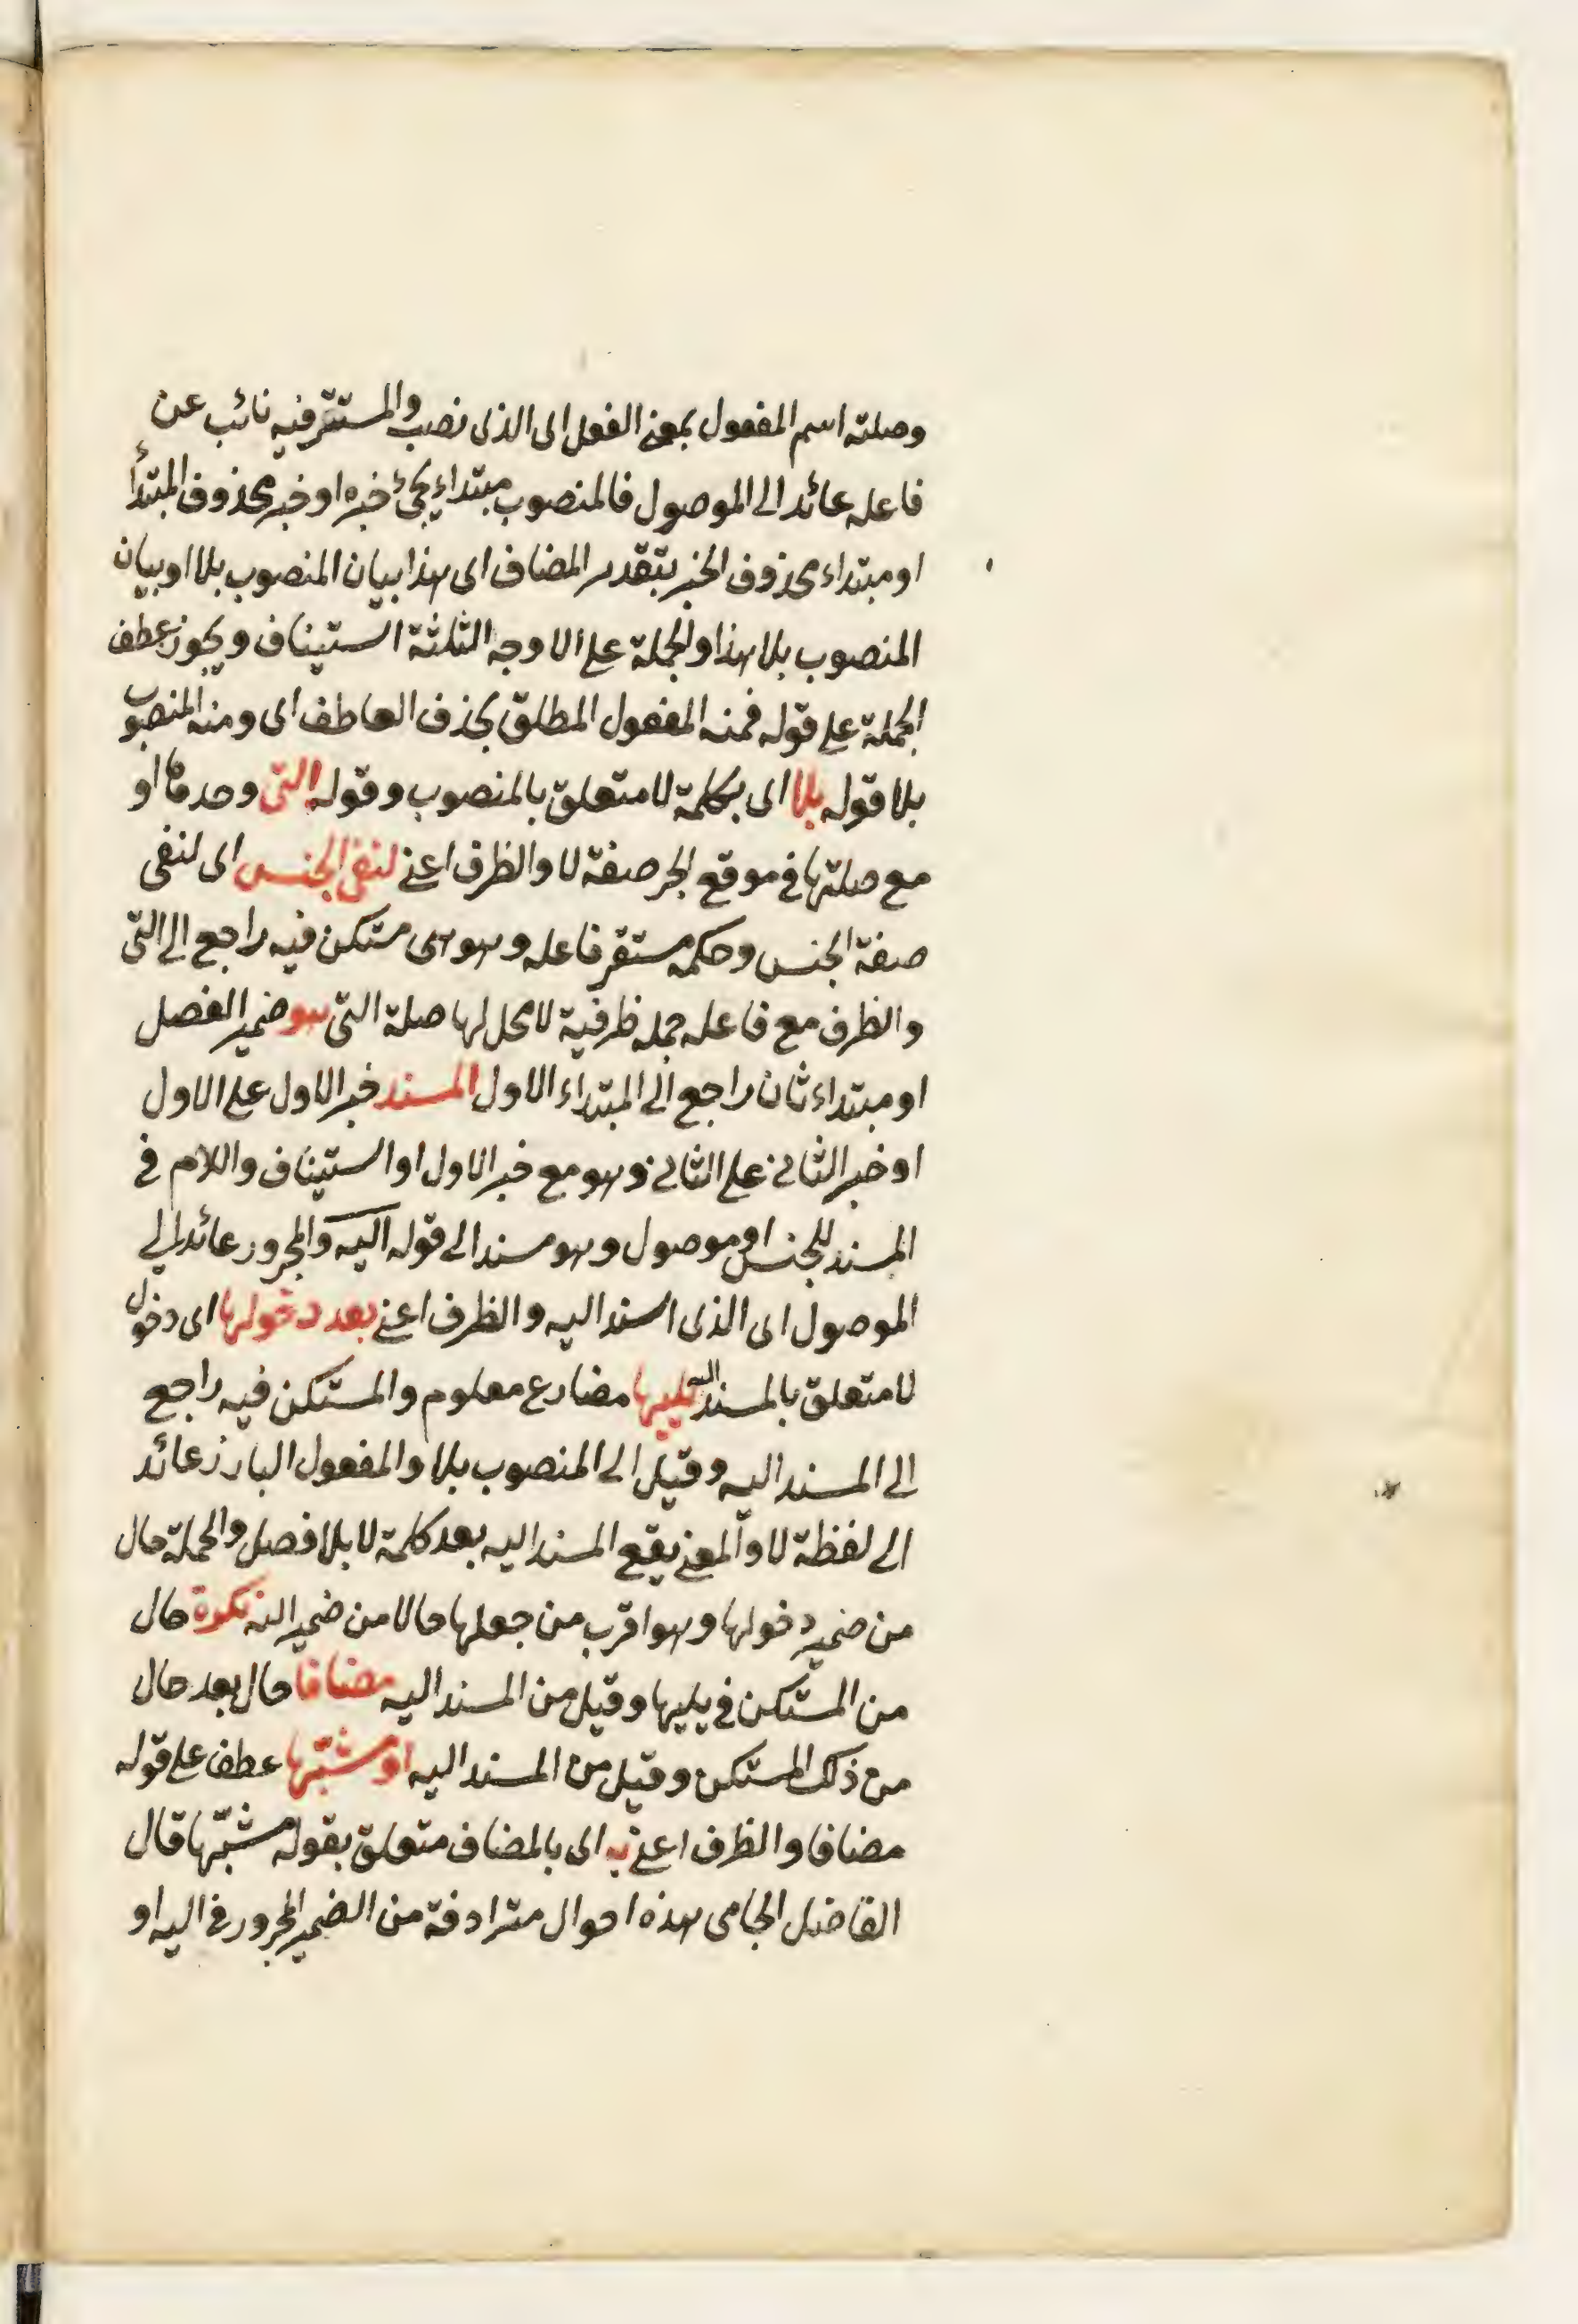 وصلته اسم المفعول بمعنى الفعل اى الذى نصب والمستتر فيه نائب عن
فاعله عائد الى الموصول فالمنصوب مبتداء يجئ خبره او خبر محذوف المبتدأ
او مبتداء محذوف الخبر بتقدير المضاف اى هذا بيان المنصوب بلا او بيان
المنصوب بلا هذا والجملة على الاوجه الثلثة استيناف ويجوز عطف
الجملة على قوله فمنه المفعول المطلق بحذف العاطف اى ومنه المنصوب
بلا قوله بلا اى بكلمة لا متعلق بالمنصوب وقوله التى وحدها او
مع صلتها فى موقع الجر صفة لا والظرف اعنى لنفى الجنس اى لنفى
صفة الجنس وحكمه مستقر فاعله وهو هى مستكن فيه راجع الى التى
والظرف مع فاعله جمله ظرفية لا محل لها صلة التى هو ضمير الفصل
او مبتداء ثان راجع الى المبتداء الاول المسند خبر الاول على الاول
او خبر الثانى على الثانى وهو مع خبر الاول او استيناف واللام فى
المسند للجنس او موصول وهو مسند الى قوله اليه والمجرور عائد الى
الموصول اى الذى اسند اليه والظرف اعنى بعد دخولها اى دخول
لا متعلق بالمسند اليه يليها مضارع معلوم والمستكن فيه راجع
الى المسند اليه وقيل الى المنصوب بلا والمفعول البارز عائد
الى لفظة لا والمعنى يقع المسند اليه بعد كلمة لا بلا فصل والجملة حال
من ضمير دخولها وهو اقرب من جعلها حالا من ضمير اليه نكرة حال
من المستكن فى يليها وقيل من المسند اليه مضافا حال بعد حال
من ذلك المستكن وقيل من المسند اليه او مشبها عطف على قوله
مضافا والظرف اعنى به اى بالمضاف متعلق بقوله مشبها قال
الفاضل الجامى هذه احوال مترادفة من الضمير المجرور فى اليه او